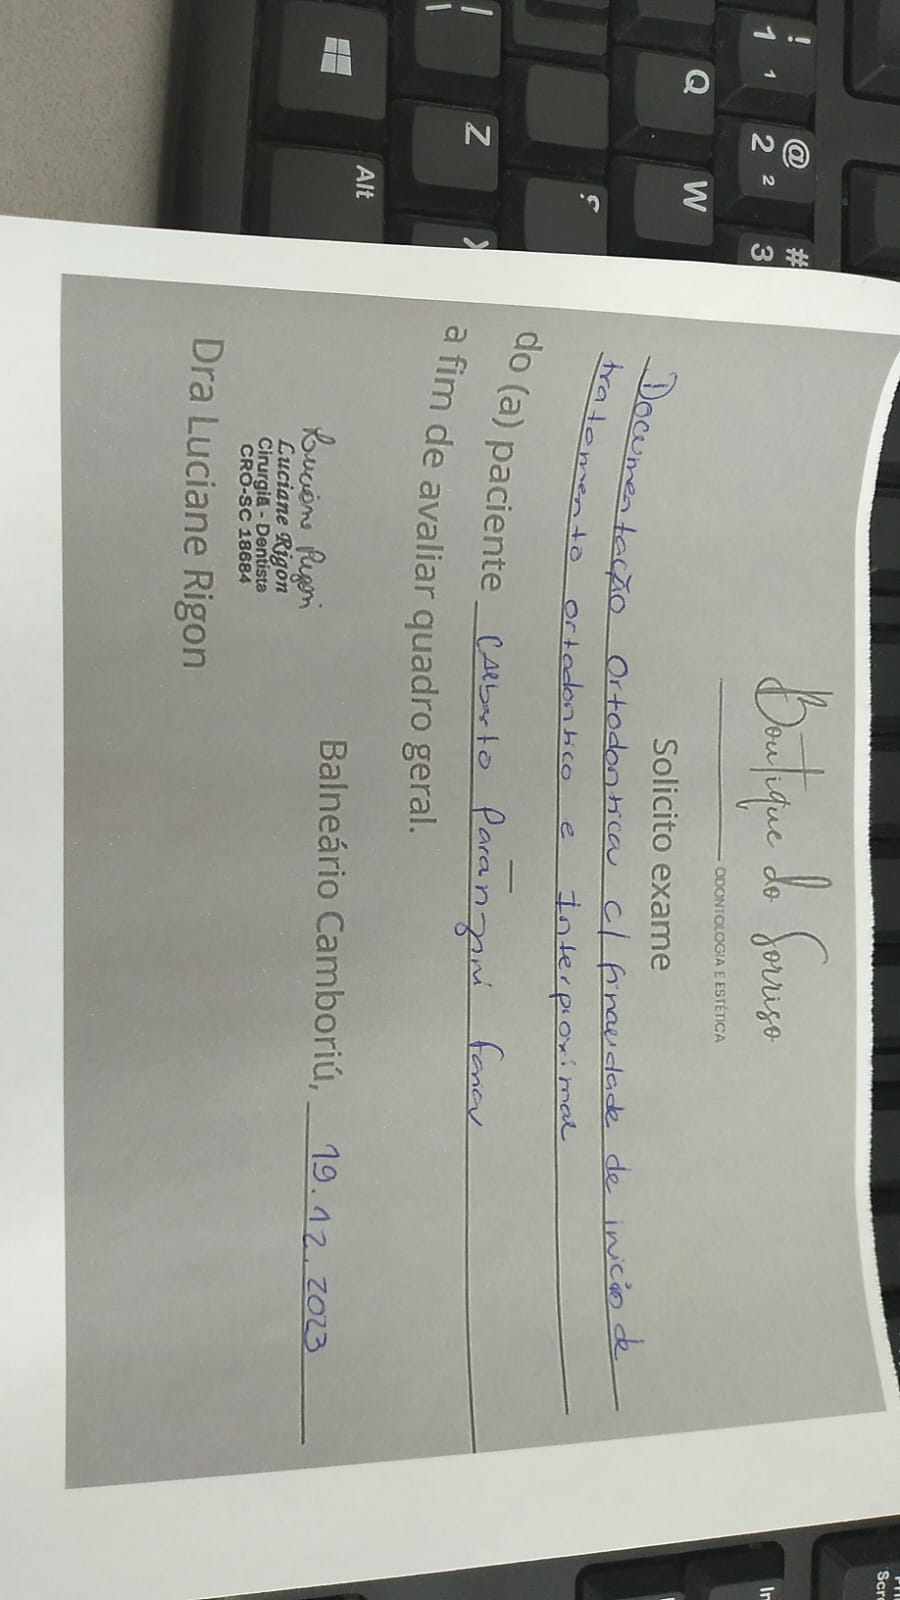 ! 1 1
@ 2 2
# 3
Q
W
Z
Alt
Boutique do Sorriso
ODONTOLOGIA E ESTÉTICA
Solicito exame
Documentação Ortodontica c/ finalidade de inicio de
tratamento ortodontico e Interproximal
do (a) paciente Paranzini
a fim de avaliar quadro geral.
Balneário Camboriú, 19.12.2023
Luciane Rigon
Luciane Rigon
Cirurgiã - Dentista
CRO-SC 18684
Dra Luciane Rigon